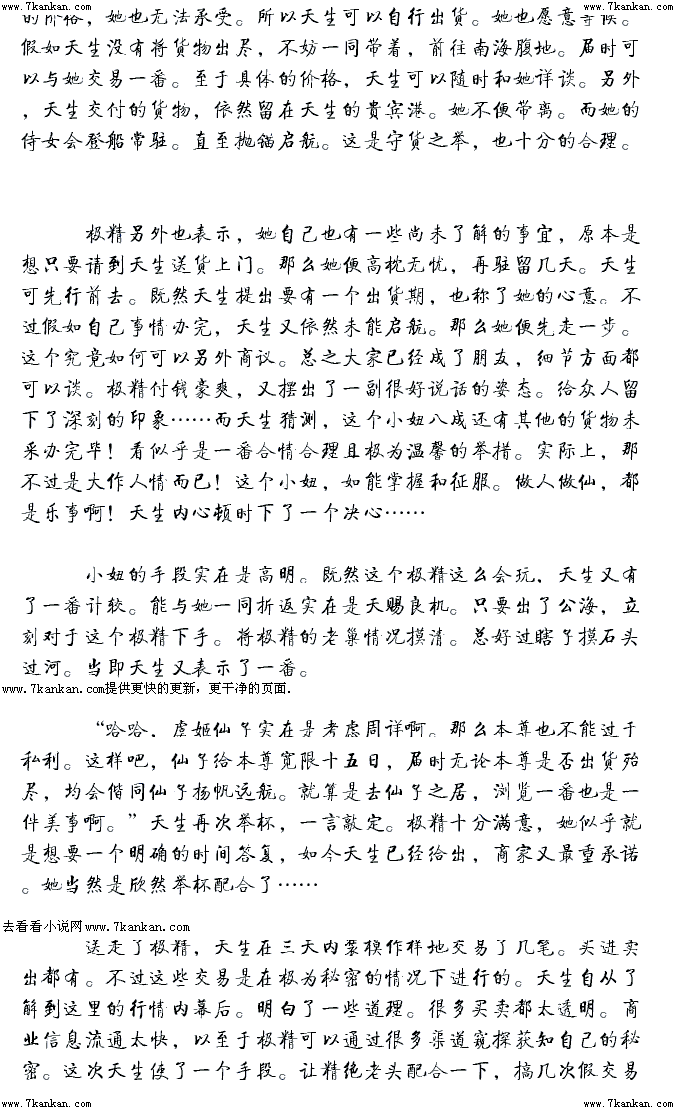 www.7kankan.com www.7kankan.com
的价格，她也无法承受。所以天生可以自行出货。她也愿意等候。
假如天生没有将货物出尽，不妨一同带着，前往南海腹地。届时可
以与她交易一番。至于具体的价格，天生可以随时和她详谈。另外
，天生交付的货物，依然留在天生的贵宾港。她不便带离。而她的
侍女会登船常驻。直至抛锚启航。这是守货之举，也十分的合理。
极精另外也表示，她自己也有一些尚未了解的事宜，原本是
想只要请到天生送货上门。那么她便高枕无忧，再驻留几天。天生
可先行前去。既然天生提出要有一个出货期，也称了她的心意。不
过假如自己事情办完，天生又依然未能启航。那么她便先走一步。
这个究竟如何可以另外商议。总之大家已经成了朋友，细节方面都
可以谈。极精付钱豪爽，又摆出了一副很好说话的姿态。给众人留
下了深刻的印象……而天生猜测，这个小妞八成还有其他的货物未
采办完毕！看似乎是一番合情合理且极为温馨的举措。实际上，那
不过是大作人情而已！这个小妞，如能掌握和征服。做人做仙，都
是乐事啊！天生内心顿时下了一个决心……
小妞的手段实在是高明。既然这个极精这么会玩，天生又有
了一番计较。能与她一同折返实在是天赐良机。只要出了公海，立
刻对于这个极精下手。将极精的老巢情况摸清。总好过瞎子摸石头
过河。当即天生又表示了一番。
www.7kankan.com提供更快的更新，更干净的页面.
“哈哈，虚姬仙子实在是考虑周详啊。那么本尊也不能过于
私利。这样吧，仙子给本尊宽限十五日，届时无论本尊是否出货殆
尽，均会偕同仙子扬帆远航。就算是去仙子之居，浏览一番也是一
件美事啊。”天生再次举杯，一言敲定。极精十分满意，她似乎就
是想要一个明确的时间答复，如今天生已经给出，商家又最重承诺
。她当然是欣然举杯配合了……
去看看小说网www.7kankan.com
送走了极精，天生在三天内装模作样地交易了几笔。买进卖
出都有。不过这些交易是在极为秘密的情况下进行的。天生自从了
解到这里的行情内幕后。明白了一些道理。很多买卖都太透明。商
业信息流通太快，以至于极精可以通过很多渠道窥探获知自己的秘
密。这次天生使了一个手段。让精绝老头配合一下，搞几次假交易
www.7kankan.com www.7kankan.com